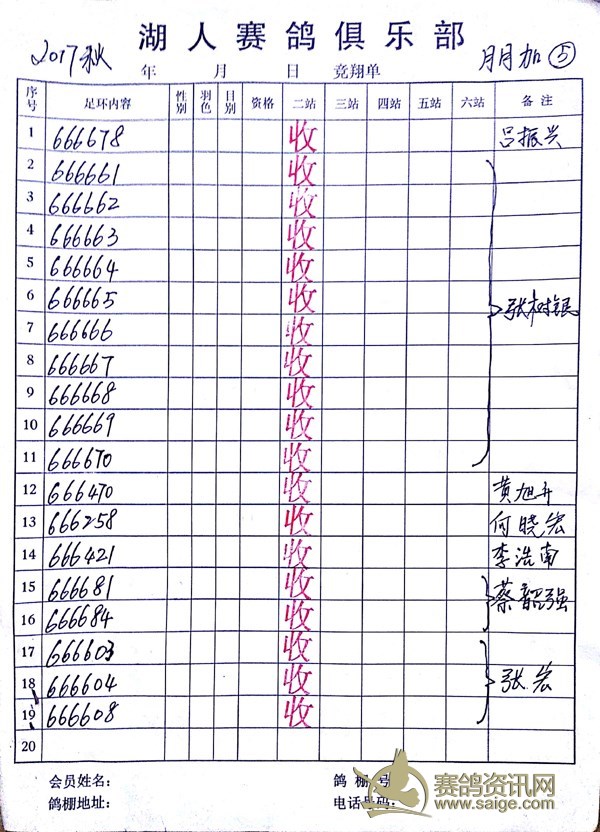 湖人赛鸽俱乐部
2017秋 年 月 日 竞翔单 月月加⑤
序号 足环内容 性别 羽色 日别 资格 二站 三站 四站 五站 六站 备注
1 666678 收 吕振兴
2 666661 收
3 666662 收
4 666663 收
5 666664 收
6 666665 收 张树银
7 666666 收
8 666667 收
9 666668 收
10 666669 收
11 666670 收
12 666470 收 黄旭升
13 666258 收 何晓宏
14 666421 收 李浩南
15 666681 收 蔡韶强
16 666684 收
17 666603 收
18 666604 收 张宏
19 666608 收
20
会员姓名: 鸽棚号:
鸽棚地址: 电话号码:
赛鸽资讯网
www.saige.com